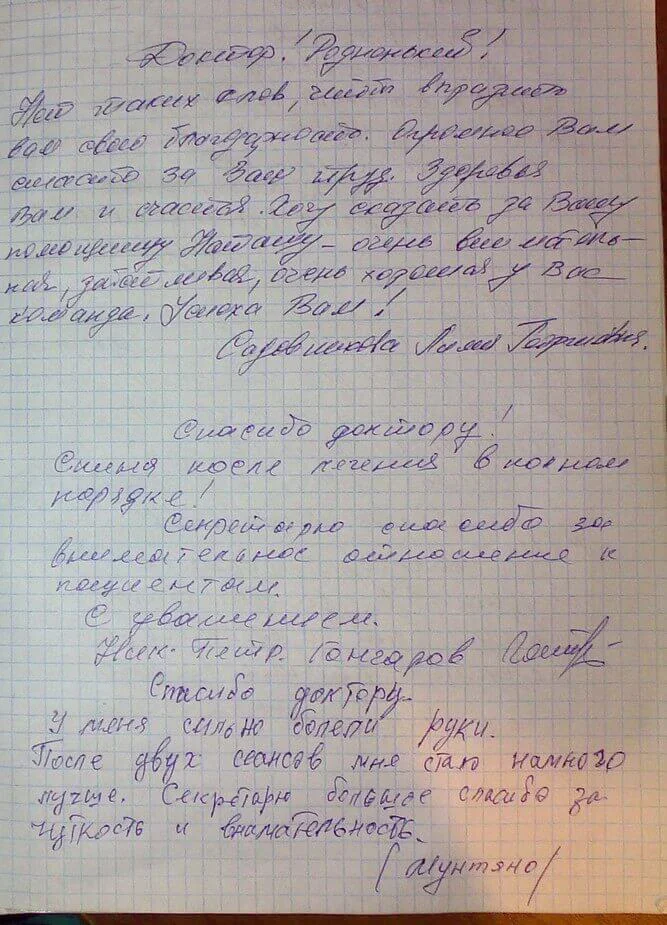 Доктор! Родненький!
Нет таких слов, чтобы выразить
вам свою благодарность. Огромное Вам
спасибо за Ваш труд. Здоровья
Вам и счастья. Хочу сказать за Вашу
помощницу Наташу – очень вниматель-
ная, очень хорошая у Вас
команда. Успеха Вам!
Садовникова Лилия Георгиевна.
Спасибо доктору!
Спина после лечения в полном
порядке!
Секретарю спасибо за
внимательное отношение к
пациентам.
С уважением.
Ник. Петр. Гончаров
Спасибо доктору.
У меня сильно болели руки.
После двух сеансов мне стало намного
лучше. Секретарю большое спасибо за
чуткость и внимательность.
/Мунтяно/